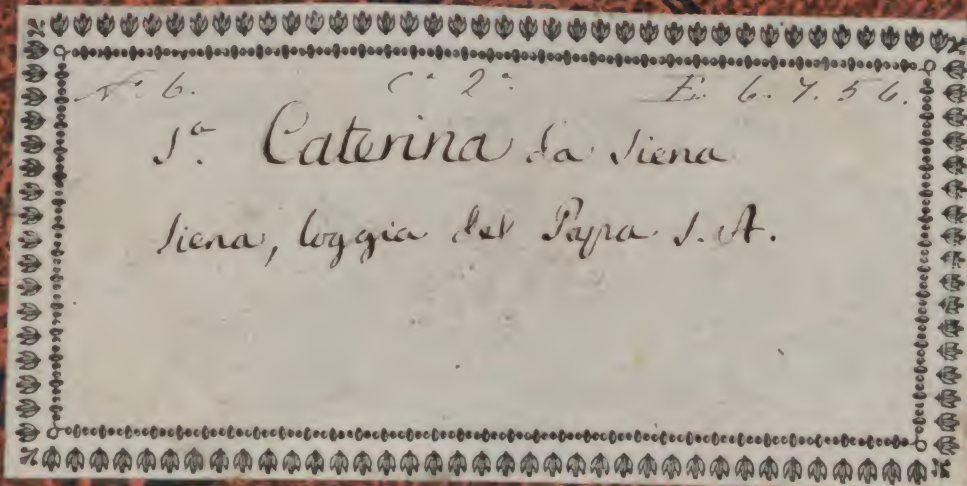 N. 6. C.ª 2.ª E. 6. 7. 56.
S.ª Caterina da Siena
Siena, loggia del Papa S. A.